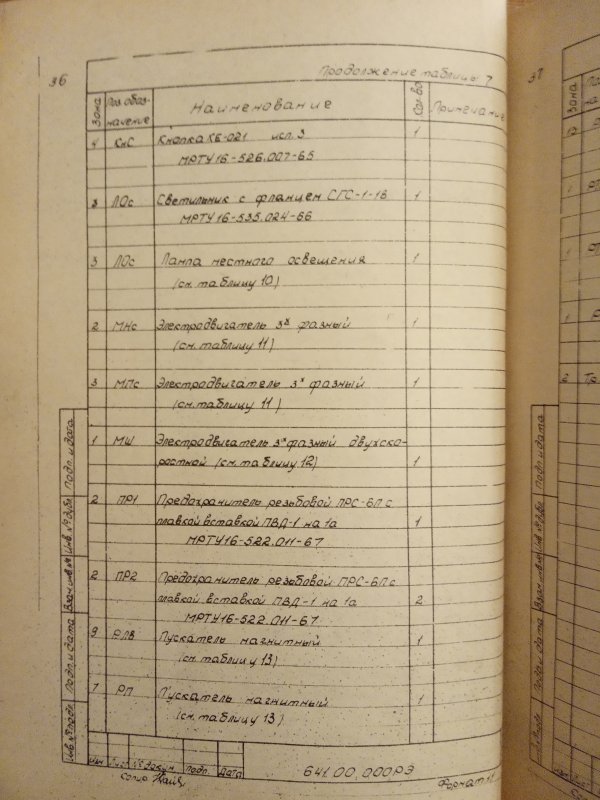 36
Продолжение таблицы 7
Зона Поз. обоз- Наименование Кол-во Примечание
начение
4 КнС Кнопка КЕ-021 исп. 3 1
МРТУ16-526.007-65
3 ЛОс Светильник с фланцем СГС-1-1В 1
МРТУ16-535.024-66
3 ЛОс Лампа местного освещения 1
(см. таблицу 10)
2 МНс Электродвигатель 3х фазный 1
(см. таблицу 11)
3 МПс Электродвигатель 3х фазный 1
(см. таблицу 11)
1 МШ Электродвигатель 3х фазный двухско-
ростной (см. таблицу 12) 1
2 ПР1 Предохранитель резьбовой ПРС-6П с
плавкой вставкой ПВД-1 на 1а 1
МРТУ16-522.011-67
2 ПР2 Предохранитель резьбовой ПРС-6П с
плавкой вставкой ПВД-1 на 1а 2
МРТУ16-522.011-67
9 Пускатель магнитный 1
(см. таблицу 13)
7 РП Пускатель магнитный 1
(см. таблицу 13)
Подп. и дата
Инв. № дубл.
Взам. инв. №
Подп. и дата
Инв. № подл.
Изм Лист № докум. Подп. Дата
641.00.000РЭ
Копир.
Формат 11
37
Зона
Подп. и дата